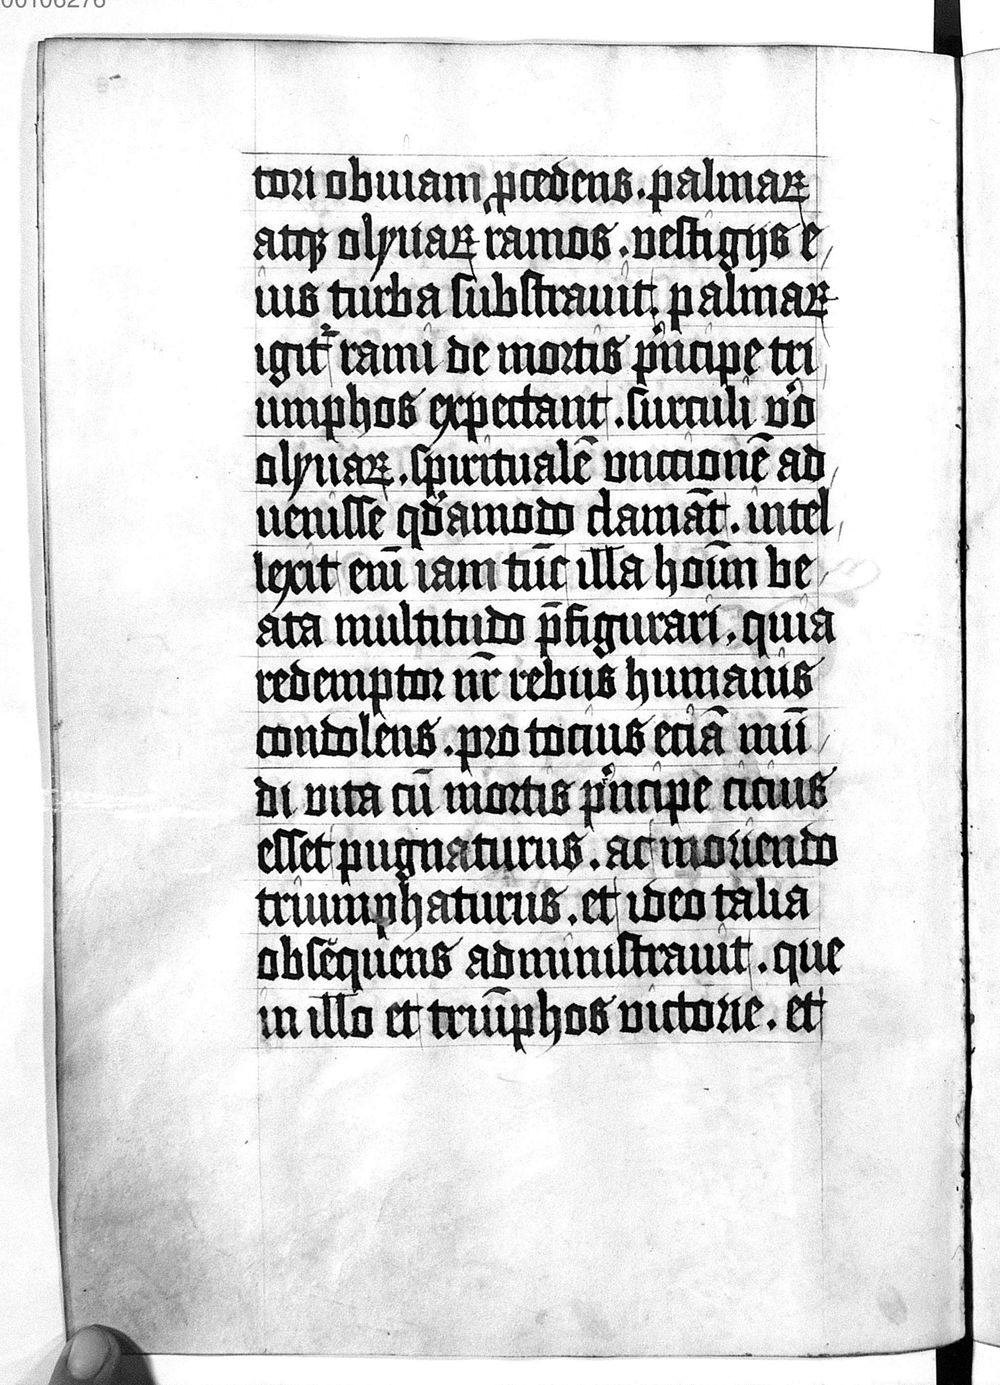 00106276
tori obuiam ꝓcedens . palmaꝝ
atqꝫ olyuaꝝ ramos . vestigijs e,
ius turba substrauit . palmaꝝ
igitᷣ rami de mortis pͥncipe tri
umphos expectant . surculi vͦo
olyuaꝝ . spiritualē vnctionē ad,
uenisse qͦdāmodo clamāt . intel,
lexit enī iam tūc illa hoīm be,
ata multitudo p̄figurari . quia
redemptor nr̄ rebus humanis
condolens . pro tocius eciā mū,
di vita cū mortis pͥncipe cicius
esset pugnaturus . ac moriendo
triumphaturus . et ideo talia
obsequens administrauit . que
in illo et triūphos victorie . et